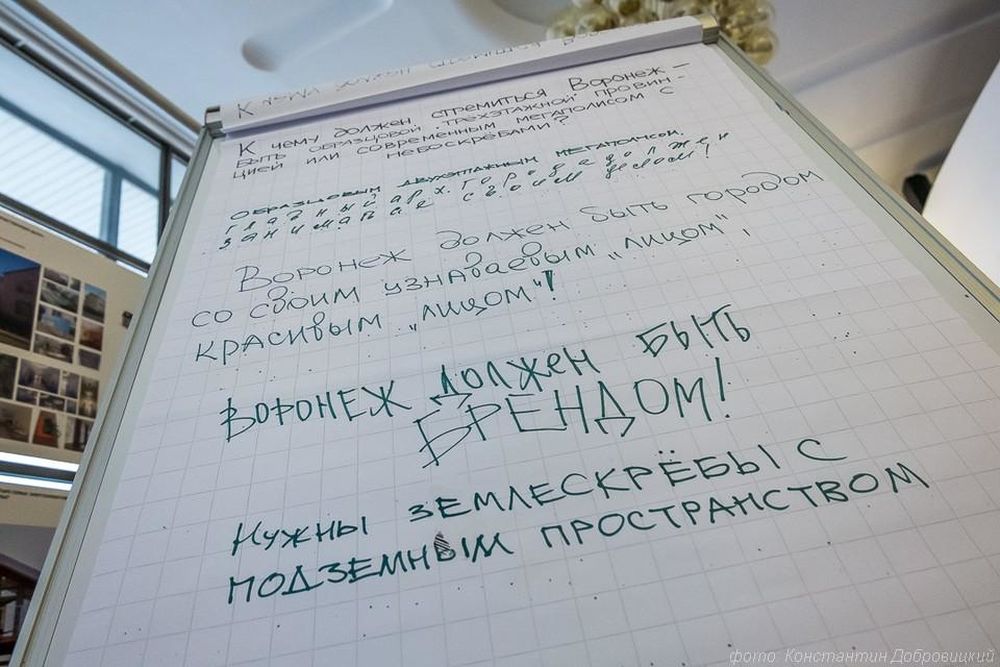 К чему должен стремиться Воронеж –
быть образцовой трёхэтажной провин-
цией или современным мегаполисом с
небоскрёбами?
ОБРАЗЦОВЫМ ДВУХЭТАЖНЫМ МЕГАПОЛИСОМ.
главный арх. города должен
заниматься своим делом!
Воронеж должен быть городом
со своим узнаваемым „лицом",
красивым „лицом"!
ВОРОНЕЖ ДОЛЖЕН БЫТЬ
БРЕНДОМ!
Нужны ЗЕМЛЕСКРЁБЫ С
ПОДЗЕМНЫМ ПРОСТРАНСТВОМ
фото: Константин Добровицкий